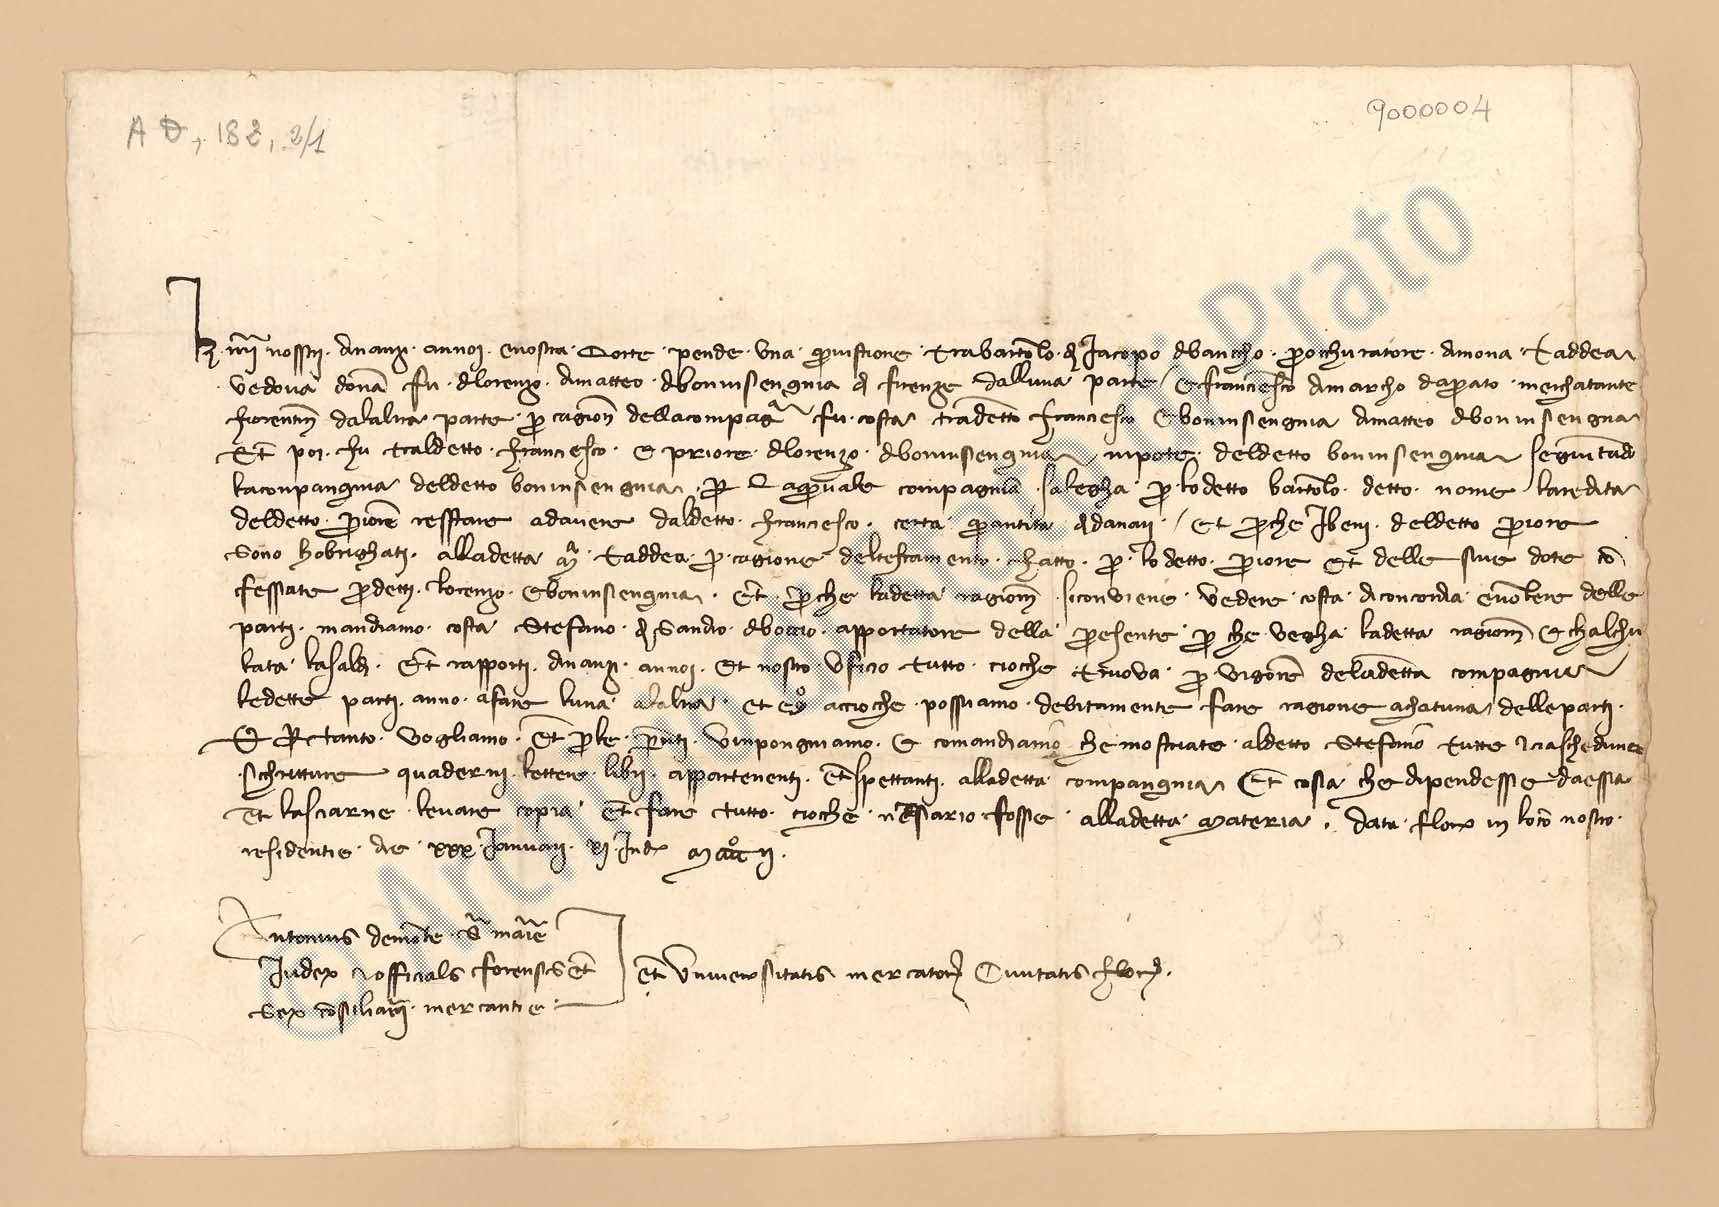 A D, 182, 2/1
9000004
nostri. dinanzi. annoi. enostra. Corte. pende. una. quistione. trabartolo. di Jacopo dbancho. prochuratore. dimona. Taddea
vedova dona fu. dlorenzo. dimatteo. dboninsengnia di firenze dalluna parte / e francescho dimarcho daprato. merchatante
fiorentino dalaltra parte. per cagion dellacompagnia fu. costa tradetto francesco e boninsengnia dimatteo dboninsengna
Et poi. fu traldetto. francesco. e priore. dlorenzo. dboninsengnia nipote. deldetto boninsengnia seguitado
lacompangnia deldetto boninsengnia. per laquale compagnia. salegha per lodetto bartolo. detto. nome laredita
deldetto. priore resstare adavere daldetto. francesco. certa quantita didanari / Et perche Ibeni. deldetto priore
Sono hobrighati. alladetta mona Taddea. per cagione deltestamento. fatto. per. lodetto. priore Et delle sue dote con
fessate perdetti. lorenzo. eboninsengnia. Et. perche ladetta ragion siconviene. vedere costa. diconcordia evolere delle
parti. mandiamo. costa Stefano. di Sandro. dboccio. apportatore della presente. per che vegha ladetta ragion echalchu
lata lasaldi. Et rapporti. dinanzi. annoi. et nostro Uficio tutto. cioche truova. per vigore deladetta compagnia
ledette parti. anno. afare luna alaltra. et accioche. possiamo. debitamente fare ragione achatuna delleparti.
E per tanto. vogliamo. Et per le. presenti. vinpongniamo. e comandiamo che mostriate. aldetto Stefano tutte & ciaschedune
schritture quaderni. lettere. libri. appartenenti. Et spettanti. alladetta compangnia Et cosa che dipendesse daessa
et lasciarne levare copia Et fare tutto. cioche. nesario fosse. alladetta materia. data flor in loco nostro.
residentie. die xxx Januarii. xi. Ind
Antonius demonte. S. marie
Iudex & officialis forensis et
Sex consiliarii. mercantie
et Universitatis mercatorum Civitatis flor.
© Archivio di Stato di Prato